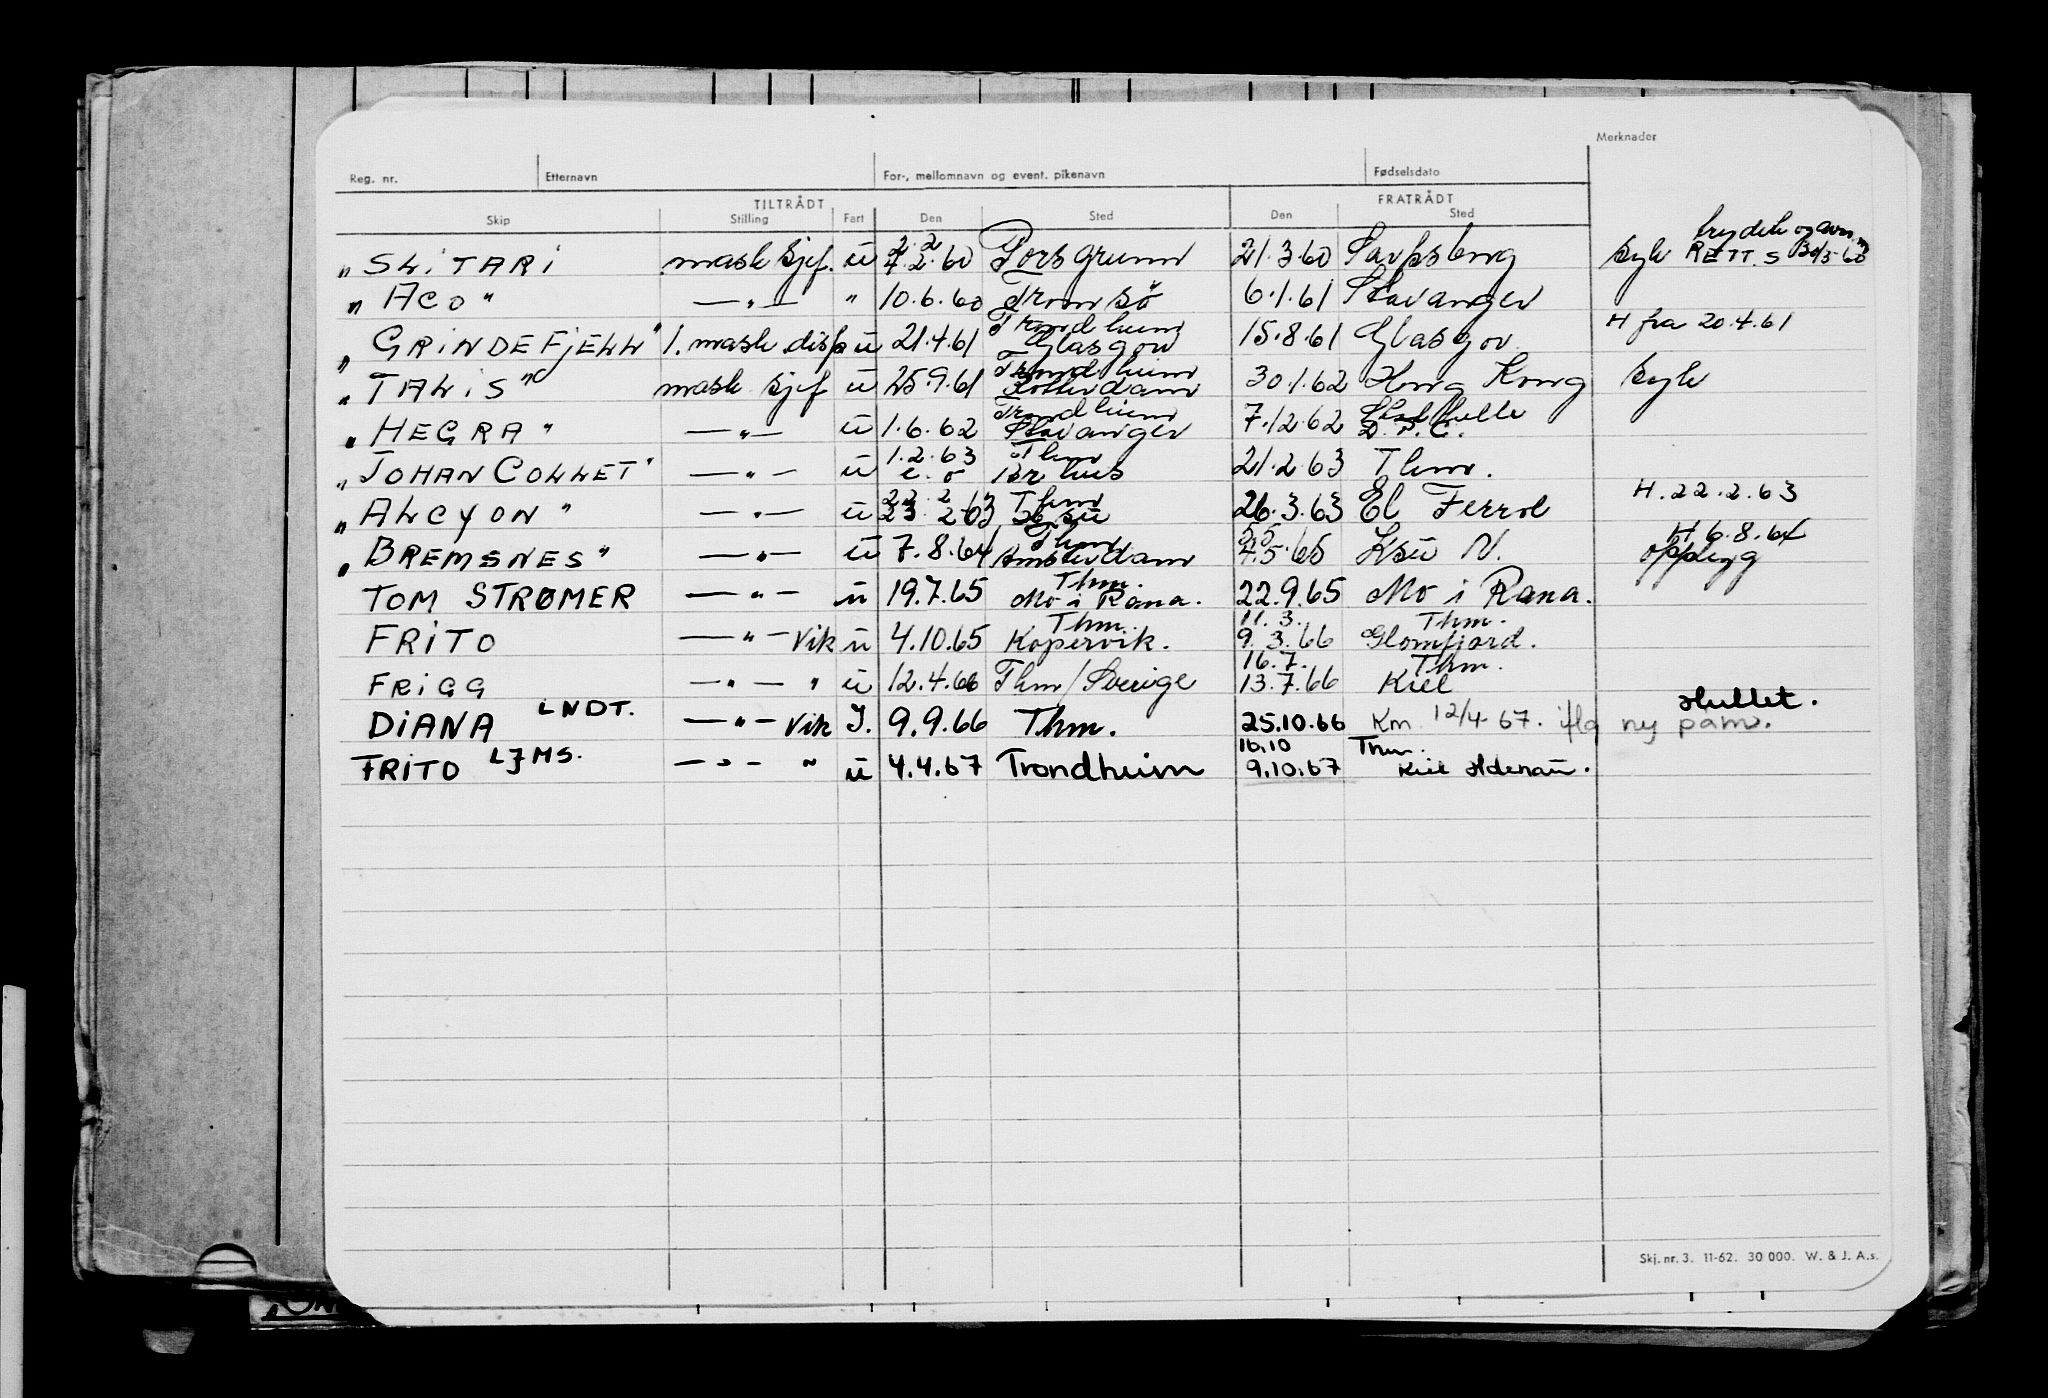 Merknader
Reg. nr. Etternavn For-, mellomnavn og event. pikenavn Fødselsdato
TILTRÅDT FRATRÅDT
Skip Stilling Fart Den Sted Den Sted
"SLiTARi mask sjef. u 2.2 4.2.60 Porsgrunn 21.3.60 Sarpsborg syk RETT. S
"ACO" —"— " 10.6.60 Tromsö 6.1.61 Stavanger
Trondheim H fra 20.4.61
"GRiNDEFjELL" 1. mask disp u 21.4.61 Glasgow 15.8.61 Glasgow
Trondheim
"TALiS" mask sjef u 25.9.61 Rotterdam 30.1.62 Hong Kong syk
Trondheim
"HEGRA" —"— u 1.6.62 Stavanger 7.12.62
1.2.63 Thm
"JOHAN COLLET" —"— u e.o 21.2.63 Thm.
22.2 Thm H.22.2.63
"ALCYON" —"— u 23.2.63 26.3.63 El Ferrol
Thm 5.5 H 6.8.64
"BREMSNES" —"— u 7.8.64 Amsterdam 4.5.65 Ksu N. oppsigg
Thm.
TOM STRØMER —"— u 19.7.65 Mo i Rana. 22.9.65 Mo i Rana.
Thm. 11.3. Thm.
FRiTO —"— vik u 4.10.65 Kopervik. 9.3.66 Glomfjord.
16.7. Thm.
FRiGG —"— " u 12.4.66 Thm/Sverige 13.7.66 Kiel
LNDT. Hullet.
DiANA —"— vik J. 9.9.66 Thm. 25.10.66 Km 12/4-67. iflg ny påm.
LJMS. 16.10 Thm.
FRiTO —"— " u 4.4.67 Trondheim 9.10.67 Kiel Holtenau.
Skj. nr. 3. 11-62. 30 000. W. & J. A.s.